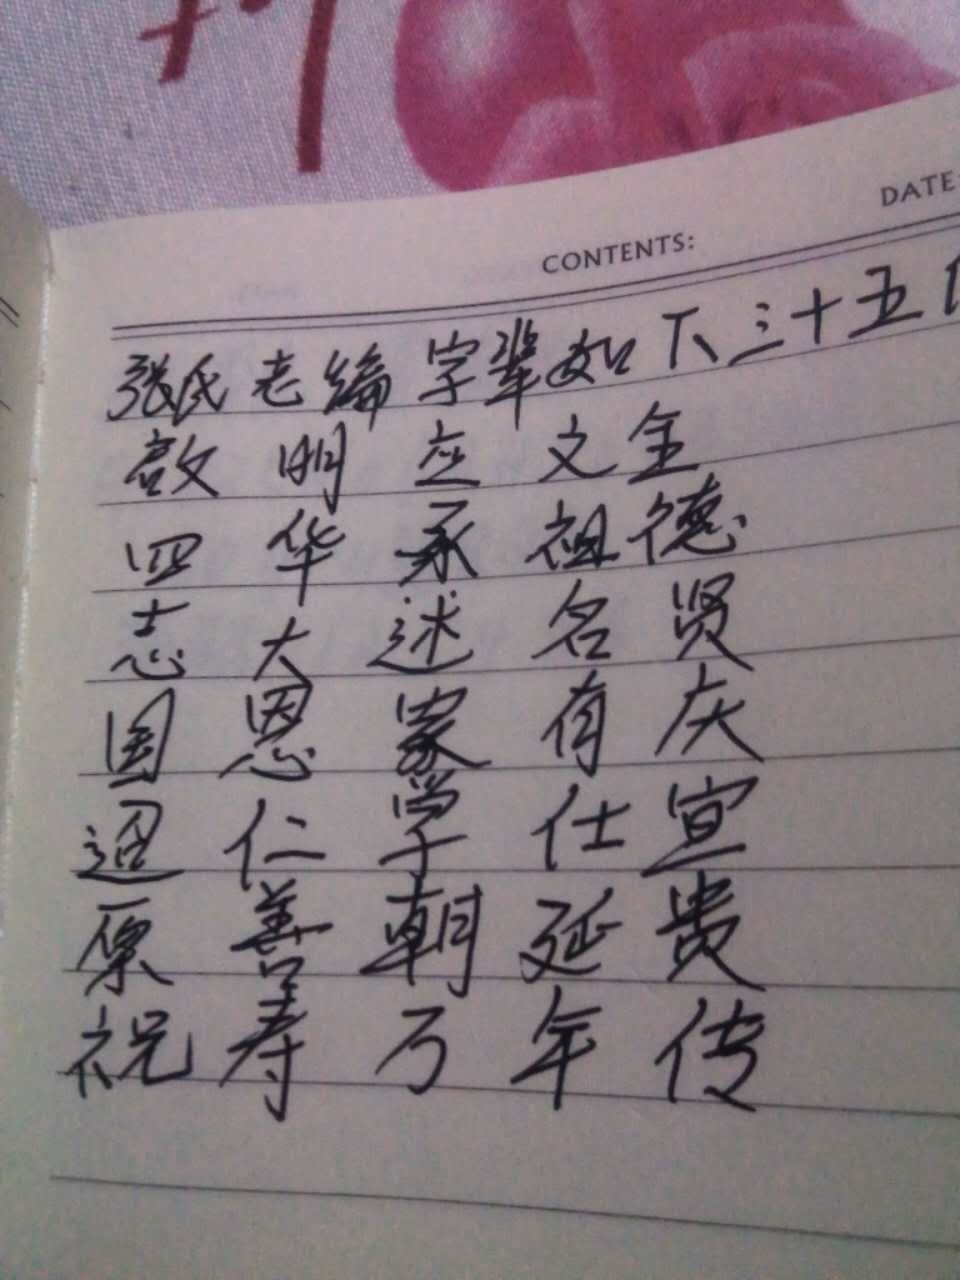 DATE:
CONTENTS:
张氏老编字辈如下三十五
明应文全
四华承祖德
志大述名贤
国恩家有庆
迢仁学仕宣
原善朝延贵
祝寿万年传